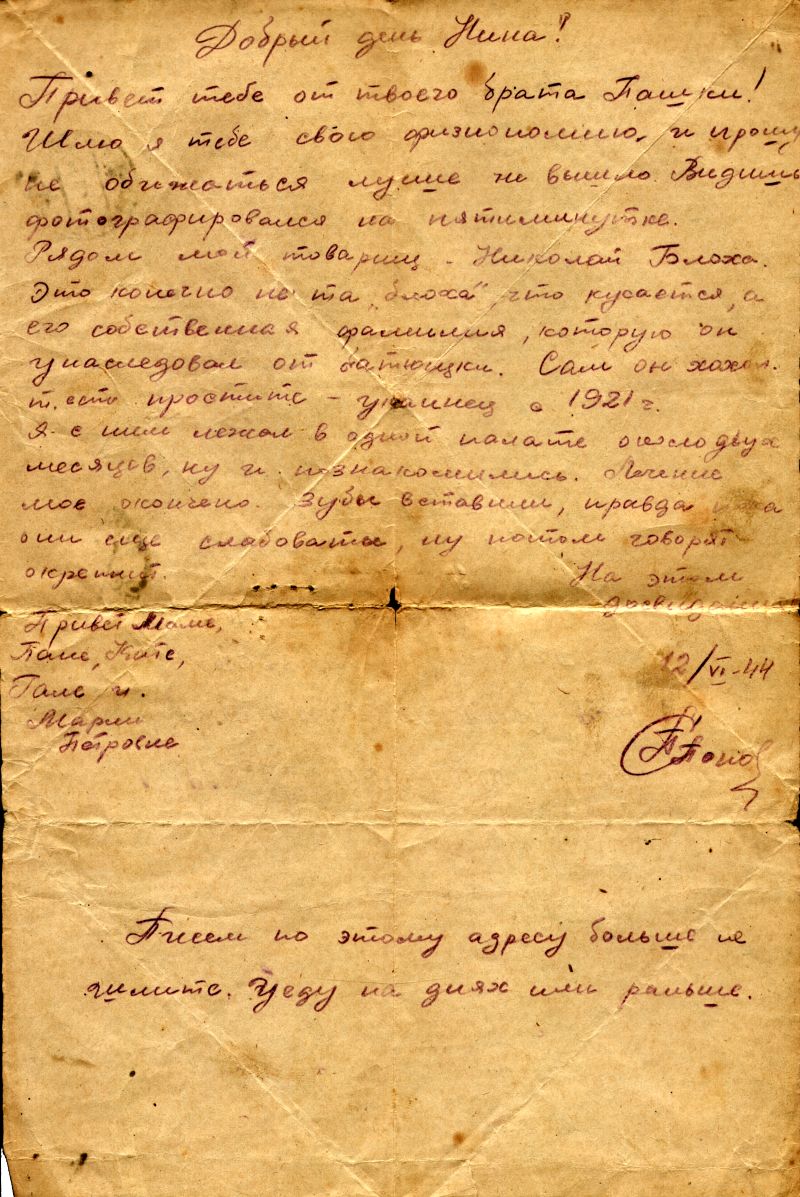 Добрый день Нина!
Привет тебе от твоего брата Пашки!
Шлю я тебе свою физиономию, и прошу
не обижаться лучше не вышло. Видишь
фотографировался на пятиминутке.
Рядом мой товарищ - Николай Блоха.
Это конечно не та „блоха“, что кусается, а
его собственная фамилия, которую он
унаследовал от батюшки. Сам он хохол.
т. есть простите - украинец с 1921 г.
Я с ним лежал в одной палате около двух
месяцев, ну и познакомились. Лечение
мое окончено. Зубы вставили, правда пока
они еще слабоваты, ну потом говорят
окрепнут.
На этом
досвидания
Привет Маме,
Пане, Кате,
Гале и.
Марии
Петровне
12/VI-44
ППопов
Писем по этому адресу больше не
шлите. Уеду на днях или раньше.